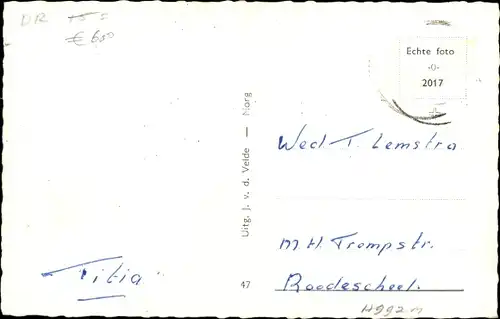 DR 15 =
€ 600
Echte foto
-0-
2017
Wed. T. Lemstra
Uitg. J. v. d. Velde — Norg
M H Trompstr.
Titia
47
Roodeschool.
H992n